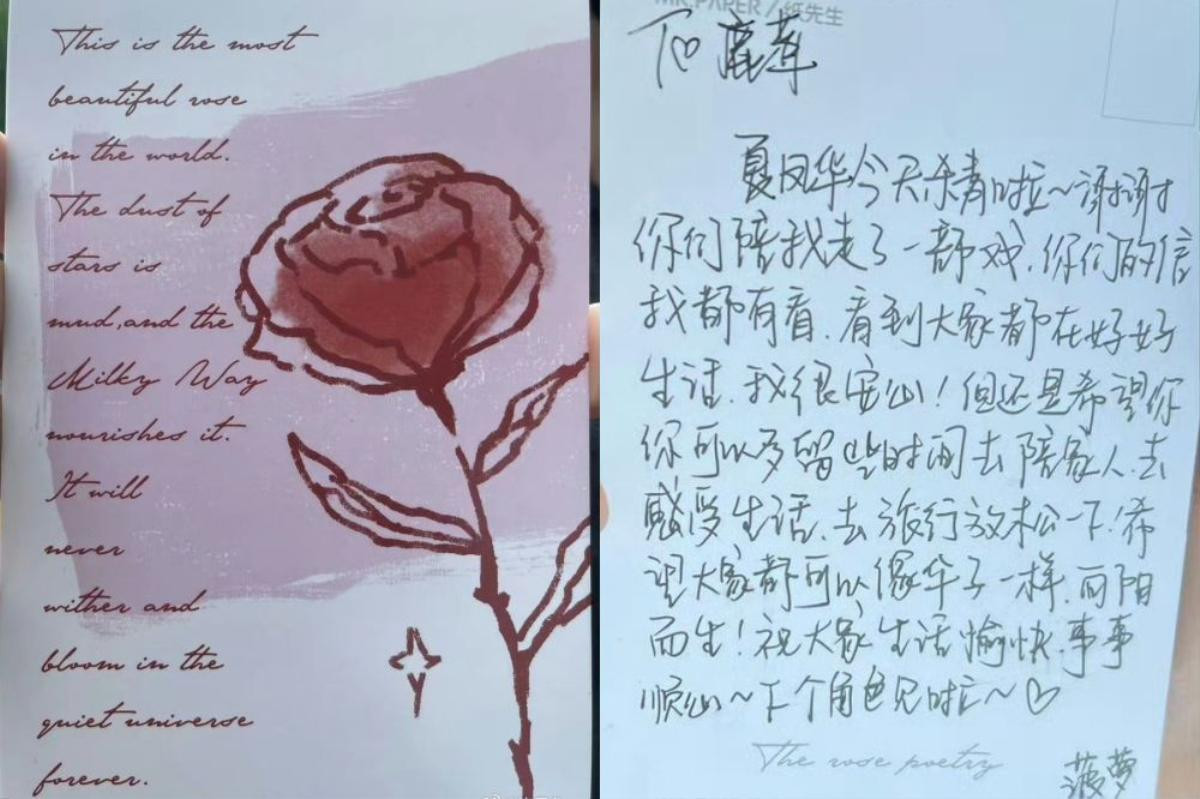 This is the most
beautiful rose
in the world.
The dust of
stars is
mud,and the
Milky Way
nourishes it.
It will
never
wither and
bloom in the
quiet universe
forever.
MR.PAPER / 纸先生
To 鹿莲
夏凤华今天杀青啦~谢谢
你们陪我走了一部戏.你们的信
我都有看.看到大家都在好好
生活.我很安心!但还是希望你
你可以多留些时间去陪家人.去
感受生活.去旅行放松一下!希
望大家都可以像华子一样.向阳
而生!祝大家生活愉快.事事
顺心~下个角色见啦~♡
The rose poetry
菠萝